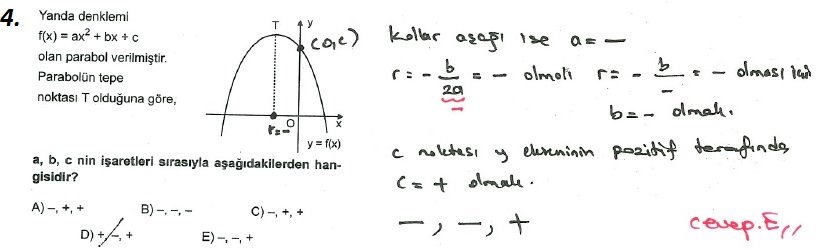 4. Yanda denklemi
f(x) = ax² + bx + c
olan parabol verilmiştir.
Parabolün tepe
noktası T olduğuna göre,
T
y
(0,c)
r=-
O
x
y = f(x)
a, b, c nin işaretleri sırasıyla aşağıdakilerden han-
gisidir?
A) –, +, +
B) –, –, –
C) –, +, +
D) +, –, +
E) –, –, +
Kollar aşağı ise a = –
r = - b/2a = – olmalı
r = - b/– = – olması için
b = – olmalı.
c noktası y ekseninin pozitif tarafında,
c = + olmalı.
–, –, +
cevap. E,,